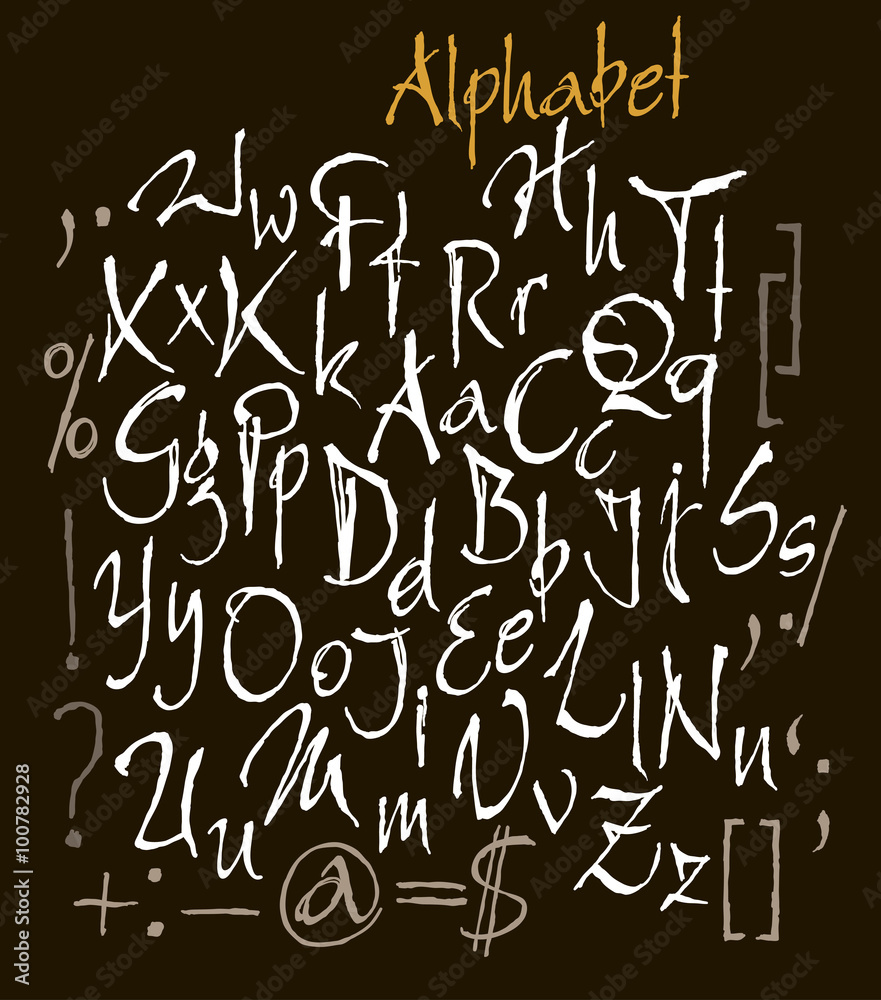 Alphabet
W w F f H h T t
; . X x K k R r Q q ]
% G g P p A a C c [
! D d B b J j S s /
Y y O o J i E e L l N n , .
? U u M m V v Z z ' . ,
+ : – @ = $ [ ]
Adobe Stock | #100782928